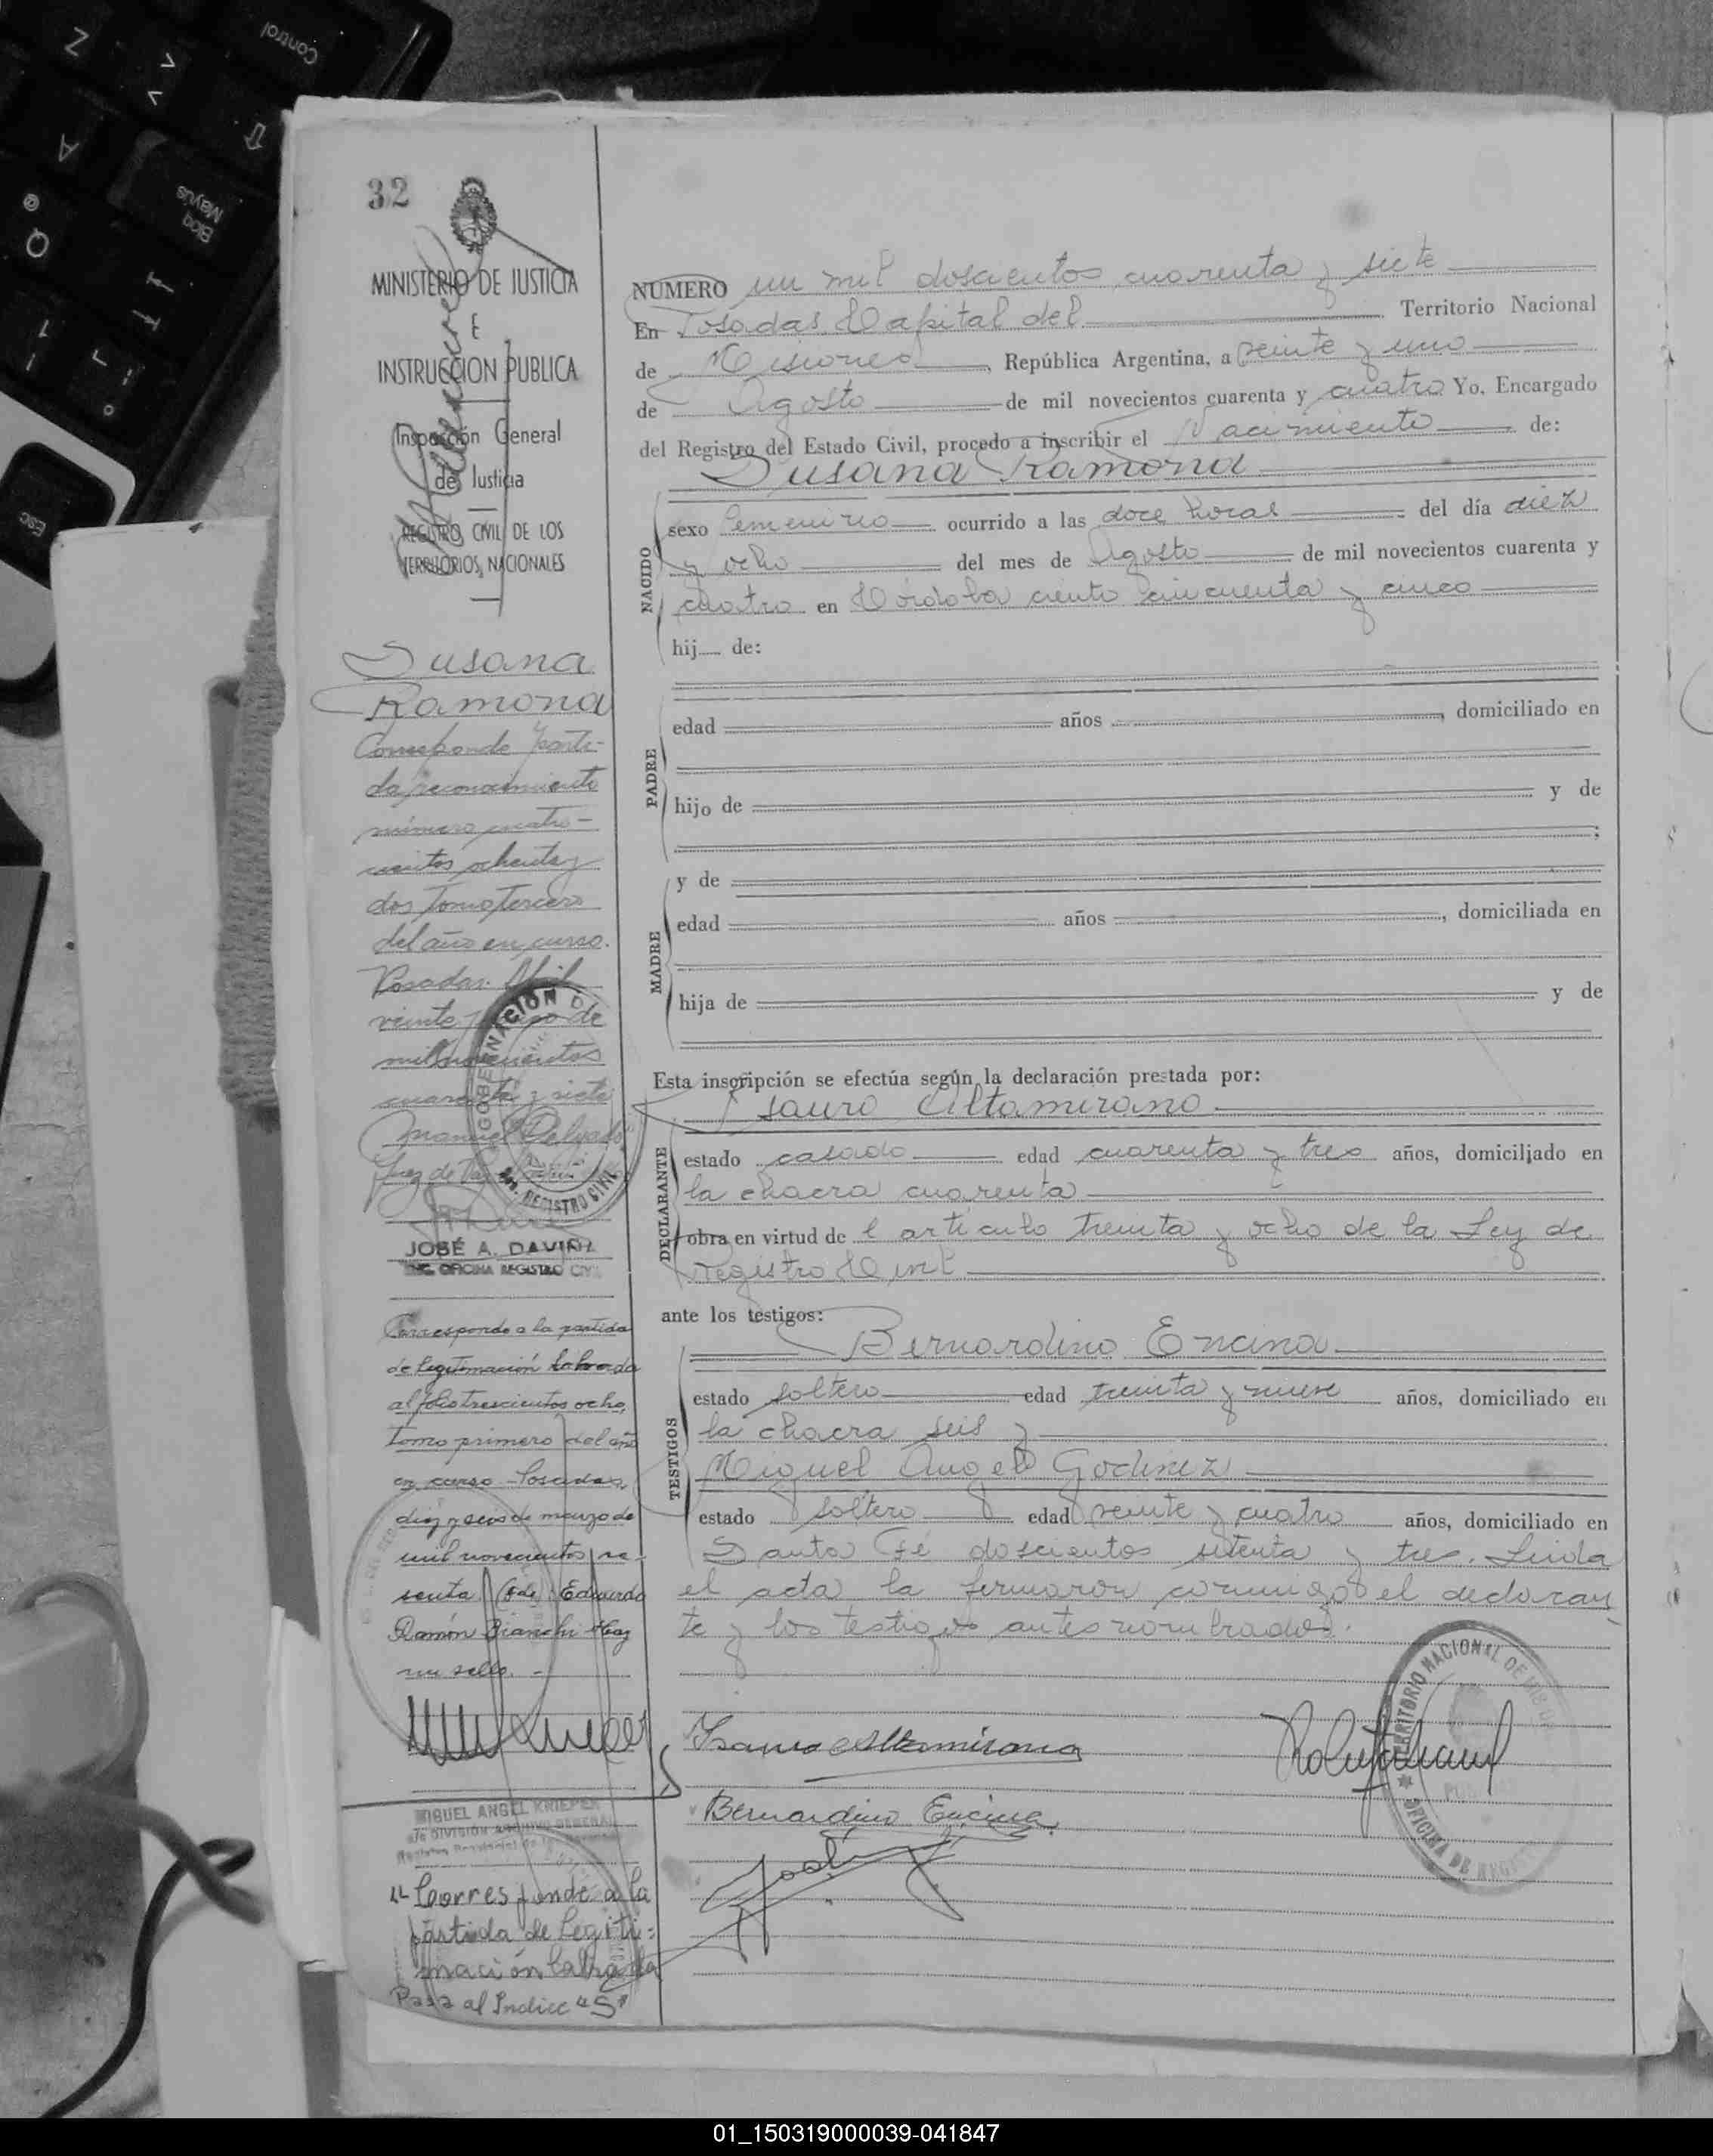 Control
Z
A
Bloq
Mayús
@
Q
Esc
32
MINISTERIO DE JUSTICIA
E
INSTRUCCION PUBLICA
Inspección General
de Justicia
REGISTRO CIVIL DE LOS
TERRITORIOS NACIONALES
Susana
Ramona
Corresponde parti-
da reconocimiento
número cuatro-
cientos ochenta y
dos Tomo tercero
del año en curso.
Posadas. Abril
veinte y de
mil novecientos
cuarenta y siete
Manuel Delgado
Juez de Paz
GOBERNACION DE
REGISTRO CIVIL
JOSÉ A. DAVIÑA
ENC. OFICINA REGISTRO CIVIL
Corresponde a la partida
de legitimación labrada
al folio trescientos ocho,
tomo primero del año
en curso. Posadas,
diez y seis de marzo de
mil novecientos se-
senta Eduardo
Ramón Bianchi Hay
un sello. -
MIGUEL ANGEL KRIEPER
a/c DIVISIÓN ARCHIVO GENERAL
"Corresponde a la
partida de legiti=
mación labrada
Pasa al Indice "S"
NUMERO un mil doscientos cuarenta y siete
En Posadas Capital del Territorio Nacional
de Misiones, República Argentina, a veinte y uno
de Agosto de mil novecientos cuarenta y cuatro Yo, Encargado
del Registro del Estado Civil, procedo a inscribir el Nacimiento de:
Susana Ramona
NACIDO
sexo femenino ocurrido a las doce horas del día diez
y ocho del mes de Agosto de mil novecientos cuarenta y
cuatro en Córdoba ciento cincuenta y cinco
hij de:
PADRE
edad años, domiciliado en
hijo de y de
;
MADRE
y de
edad años, domiciliada en
hija de y de
Esta inscripción se efectúa según la declaración prestada por:
Isauro Altamirano
DECLARANTE
estado casado edad cuarenta y tres años, domiciliado en
la chacra cuarenta
obra en virtud de l artículo treinta y ocho de la Ley de
Registro Civil
ante los testigos:
Bernardino Encina
TESTIGOS
estado soltero edad treinta y nueve años, domiciliado en
la chacra seis y
Miguel Angel Godinez
estado soltero edad veinte y cuatro años, domiciliado en
Santa Fé doscientos setenta y tres. Leida
el acta la firmaron conmigo el declaran
te y los testigos antes nombrados.
TERRITORIO NACIONAL DE MISIONES
POSADAS
OFICINA DE REGISTRO
Isauro Altamirano
Bernardino Encina
01_150319000039-041847